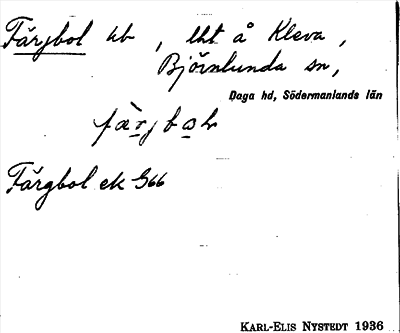 Färjbol ub , lht å Kleva ,
Björnlunda sn,
Daga hd, Södermanlands län
Färgbol ek G66
KARL-ELIS NYSTEDT 1936